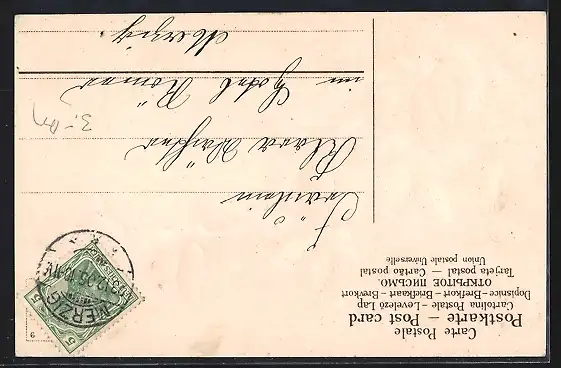 Carte Postale
Postkarte — Post card
Cartolina Postale – Levelező Lap
Dopisnice – Brefkort – Briefkaart – Brevkort
ОТКРЫТОЕ ПИСЬМО
Tarjeta postal — Cartão postal
Union postale Universelle
Fräulein
Klara
im Hotel Römer
Merzig.
MERZIG
5
5
3.-
9